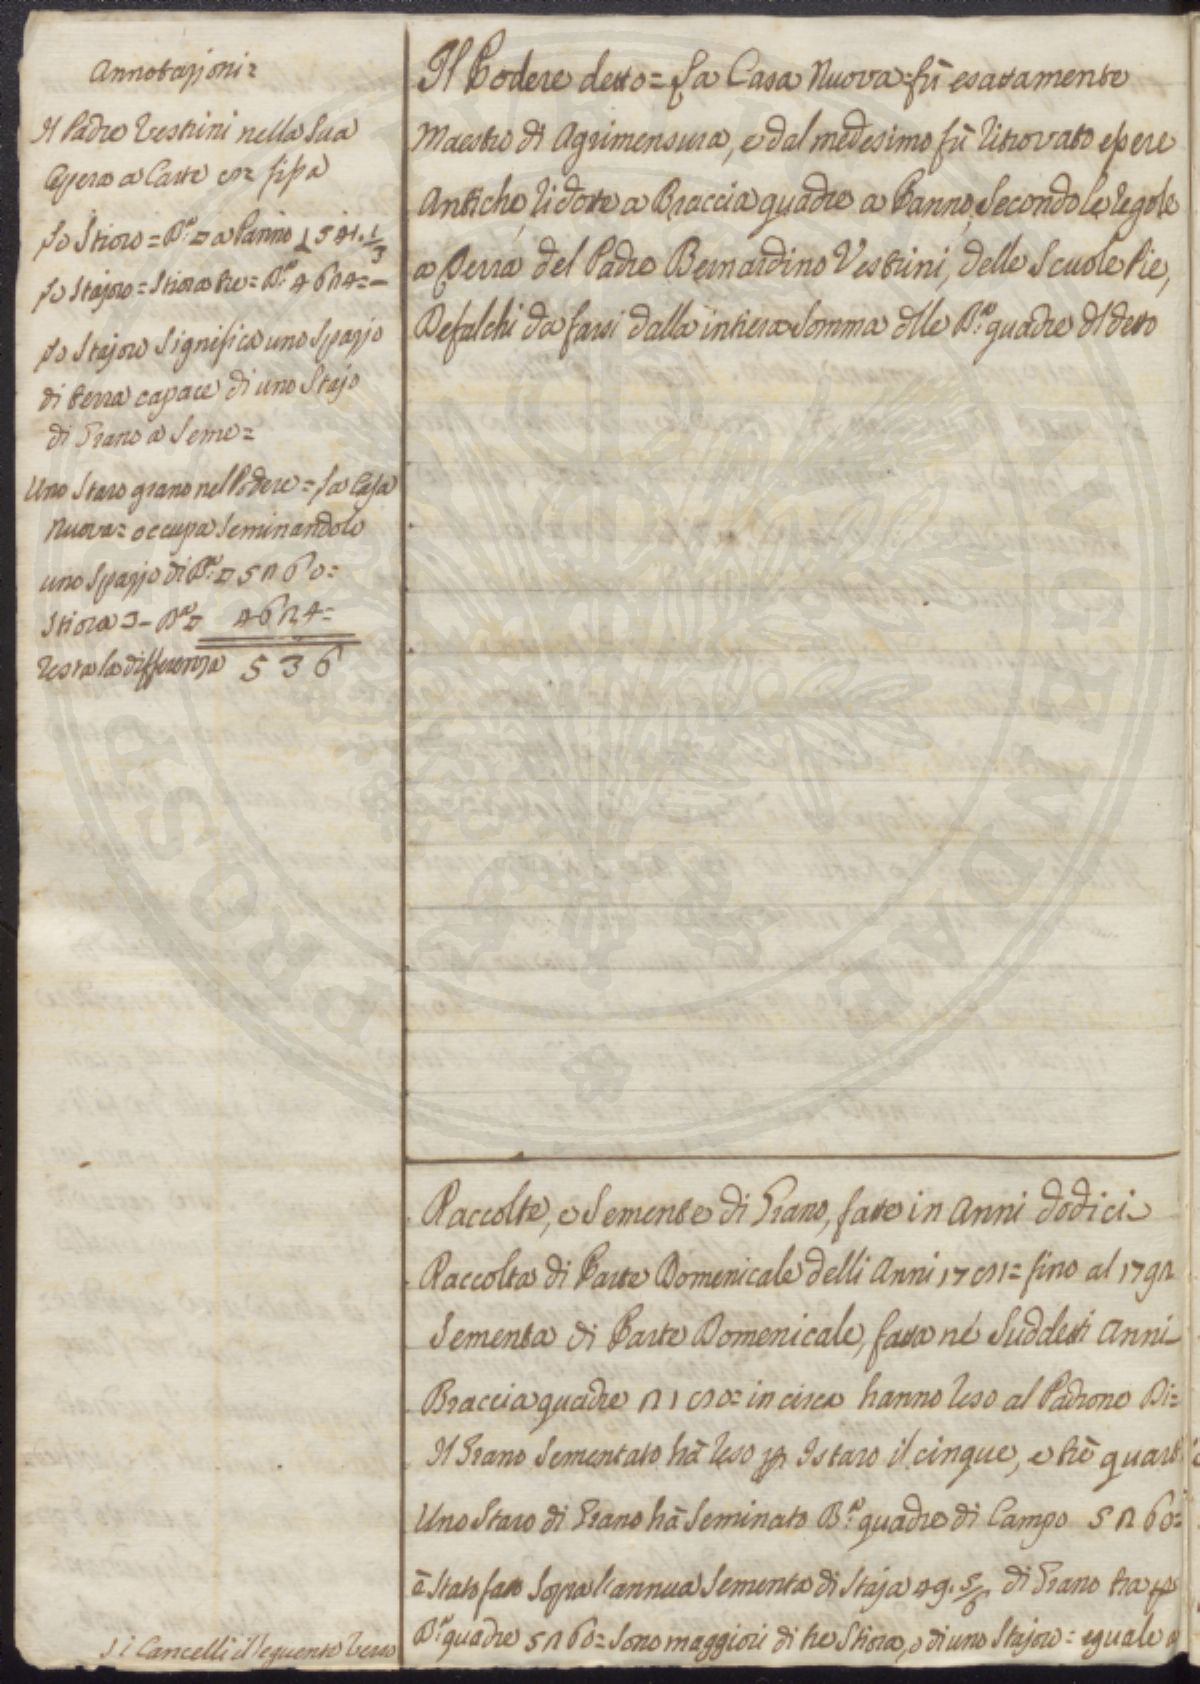 Annotazioni=
Il Padre Vestrini nella Sua
Opera a Carte 8= fissa
Lo Stioro = B.ª □ a Panno 1541.1/3
Lo Stajoro = Stiora tre = B.ª 4624=-
Lo Stajoro Significa uno Spazio
di terra capace di uno Stajo
di Grano a Seme=
Uno Staro grano nel Podere = La Casa
Nuova = occupa Seminandolo
uno Spazio di B.ª □ 5260=
Stiora 3- B.ª □ 4624=
Resta la differenza 536
Si Cancelli il seguente Verso
Il Podere detto = La Casa Nuova = fù esattamente
Maestro di Agrimensura, e dal medesimo fù ritrovato essere
Antiche, ridotte a Braccia quadre a Panno, Secondo le regole
a Terra del Padre Bernardino Vestrini, delle Scuole Pie,
Defalchi da farsi dalla intiera Somma dlle B.ª quadre dl detto
Raccolte, e Semente di Grano, fatte in Anni dodici
Raccolta di Parte Domenicale delli Anni 1781= fino al 1792
Sementa di Parte Domenicale, fatta né Suddetti Anni
Braccia quadre 2180= in circa hanno reso al Padrone Di=
Il Grano Sementato hà reso p Istaro il cinque, e trè quarti
Uno Staro di Grano hà Seminato B.ª quadre di Campo 5260=
è Stato fatto Sopra l'annua Sementa di Staja 49.5/6 di Grano tra
B.ª quadre 5260= Sono maggiori di tre Stiora, o di uno Stajoro = eguale a
PROSPERITATI AUGENDAE